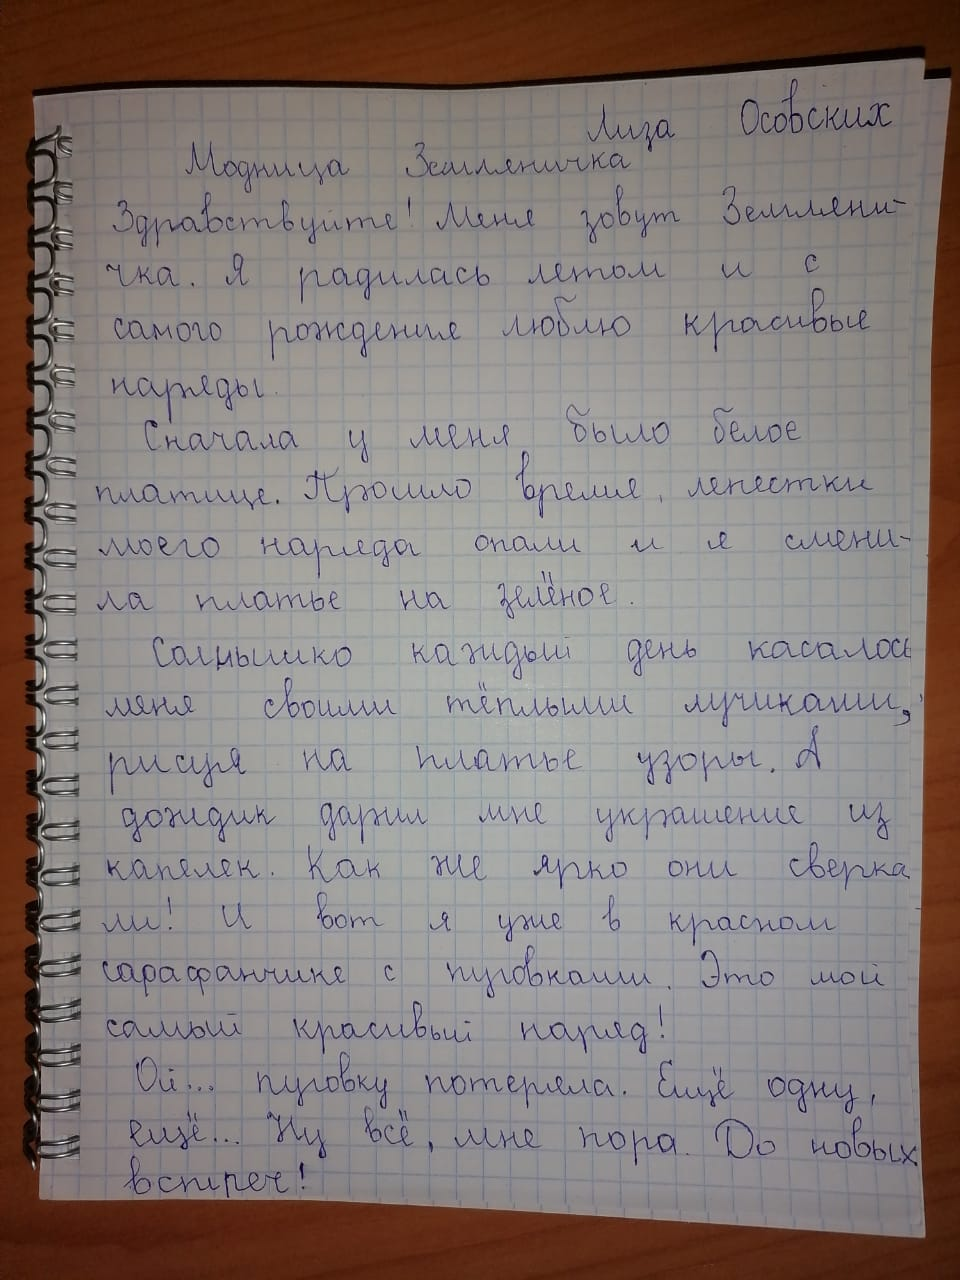 Лиза Осовских
Модница Земляничка
Здравствуйте! Меня зовутЗемляни-
чка. Я радилась летом и с
самого рождения люблю красивые
наряды.
Сначала у меня было белое
платице. Прошло время, лепестки
моего наряда опали и я смени-
ла платье на зелёное.
Солнышко каждый день касалось
меня своими тёплыми лучиками,
рисуя на платье узоры. А
дождик дарил мне украшение из
капелек. Как же ярко они сверка
ли! И вот я уже в красном
сарафанчике с пуговками. Это мой
самый красивый наряд!
Ой... пуговку потеряла. Ещё одну,
ещё... Ну всё, мне пора. До новых
встреч!